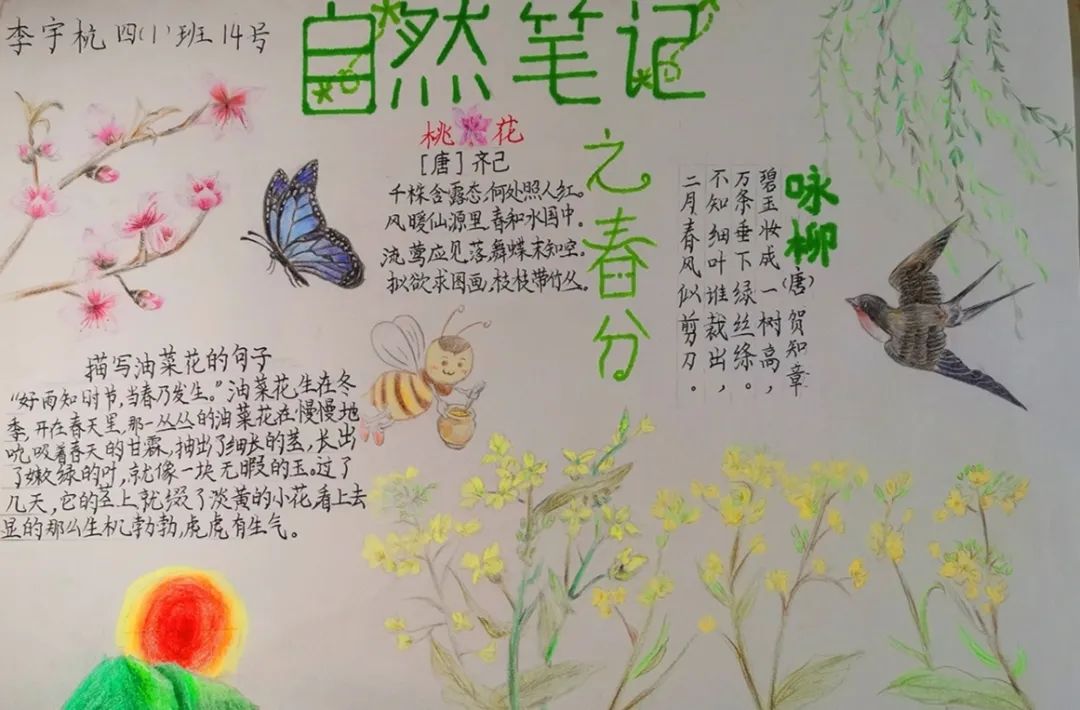 李宇杭四(1)班14号
自然笔记
之春分
桃花
[唐]齐己
千株含露态,何处照人红。
风暖仙源里,春和水国中。
流莺应见落,舞蝶未知空。
拟欲求图画,枝枝带竹丛。
咏柳
(唐)贺知章
碧玉妆成一树高,
万条垂下绿丝绦。
不知细叶谁裁出,
二月春风似剪刀。
描写油菜花的句子
“好雨知时节,当春乃发生。”油菜花生在冬
季,开在春天里,那一丛丛的油菜花在慢慢地
吮吸着春天的甘霖,抽出了细长的茎,长出
了嫩绿的叶,就像一块无暇的玉。过了
几天,它的茎上就缀了淡黄的小花,看上去
显的那么生机勃勃,虎虎有生气。